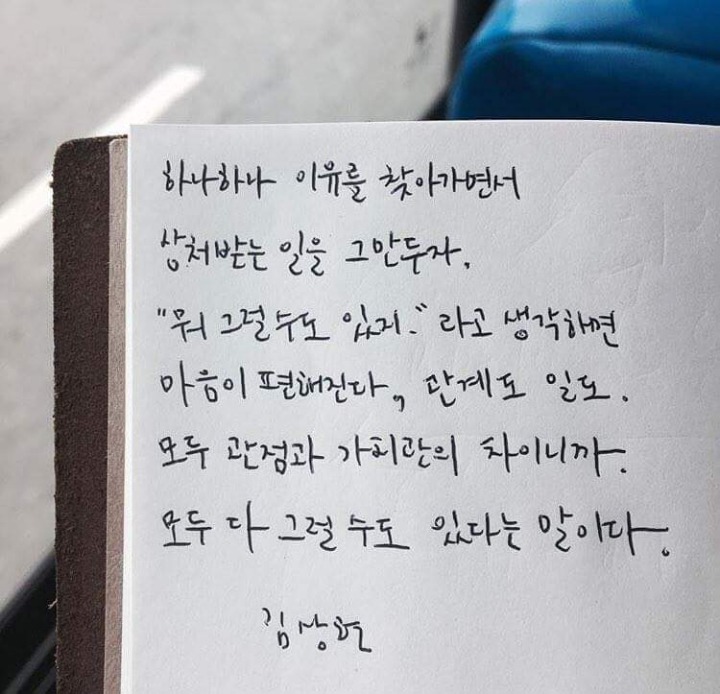 하나하나 이유를 찾아가면서
상처받는 일을 그만두자.
"뭐 그럴수도 있지." 라고 생각하면
마음이 편해진다, 관계도 일도.
모두 관점과 가치관의 차이니까.
모두 다 그럴 수도 있다는 말이다.
김상현